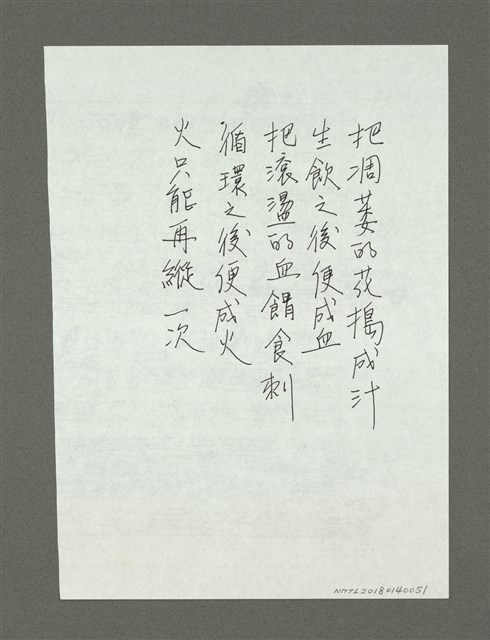 把凋萎的花搗成汁
生飲之後便成血
把滾盪的血餵食刺
循環之後便成火
火只能再縱一次
NMTL20180140051